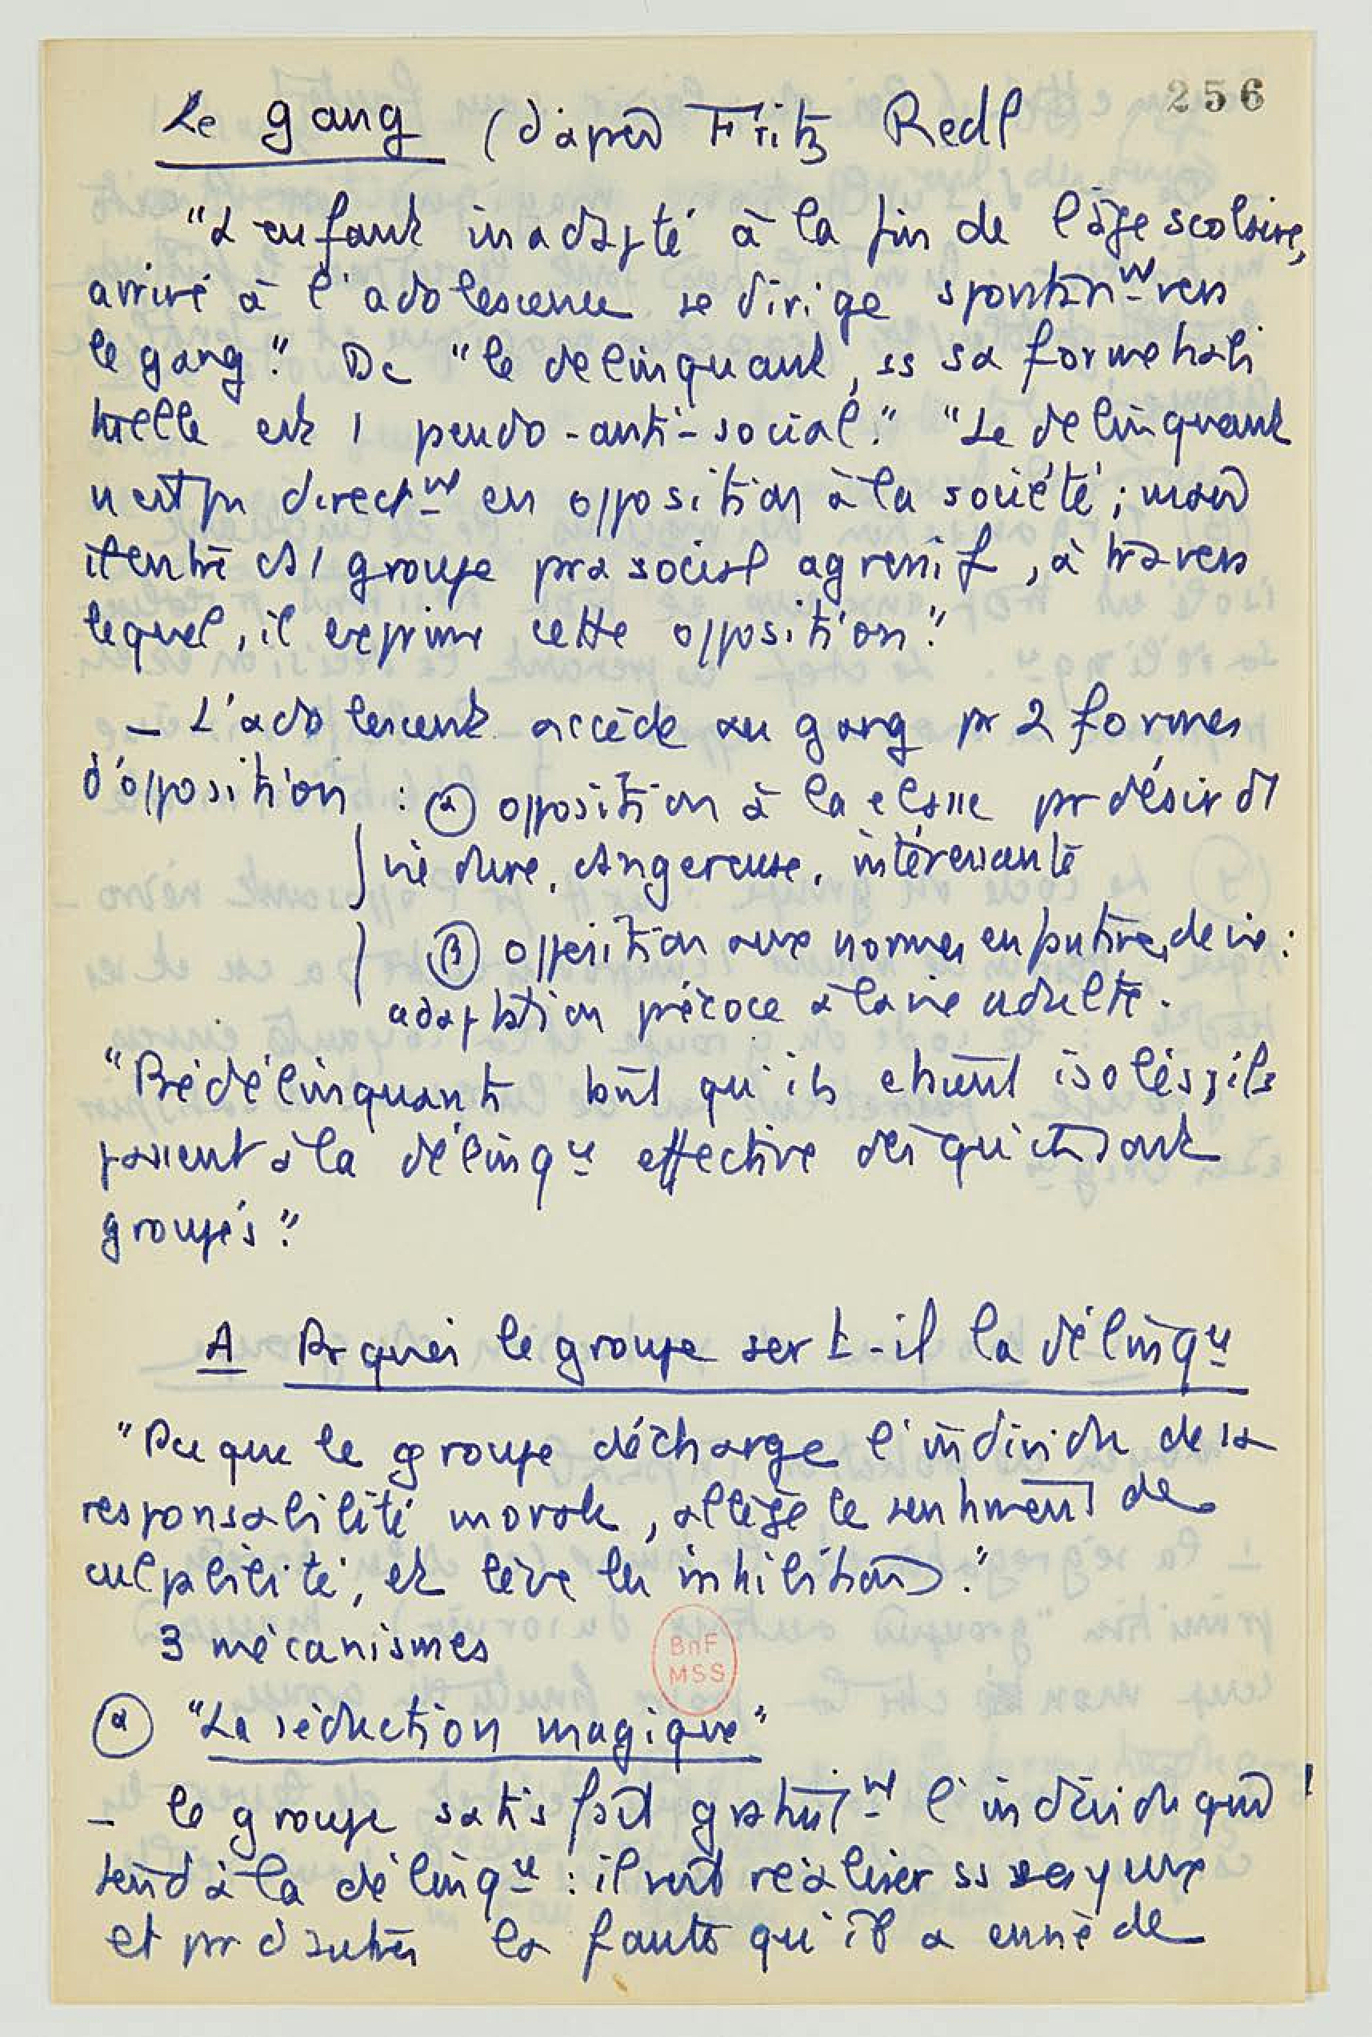 256
Le gang (d'après Fritz Redl
"L'enfant inadapté à la fin de l'âge scolaire,
arrivé à l'adolescence se dirige spontanmt vers
le gang." Dc "le délinquant, ss sa forme habi
tuelle est 1 pseudo-anti-social." "Le délinquant
n'est pas directmt en opposition à la société ; mais
il entre ds 1 groupe agressif, à travers
lequel, il exprime cette opposition."
– L'adolescent accède au gang pr 2 formes
d'opposition : (α) opposition à la classe pr désir d'1
vie dure, dangereuse, intéressante
(β) opposition aux normes de vie :
adaptation précoce à la vie adulte.
"Prédélinquants tant qu'ils étaient isolés, ils
passent à la délinqce effective dès qu'ils sont
groupés."
A Pr quoi le groupe sert-il la délinqce
"Pce que le groupe décharge l'individu de sa
responsabilité morale, allège le sentiment de
culpabilité, et lève les inhibitions."
3 mécanismes
(α) "La séduction magique"
– le groupe satisfait gratuitmt l'individu qd il
tend à la délinqce : il voit réaliser ss ses yeux
et pr d'autres la faute qu'il a envie de
BnF
MSS